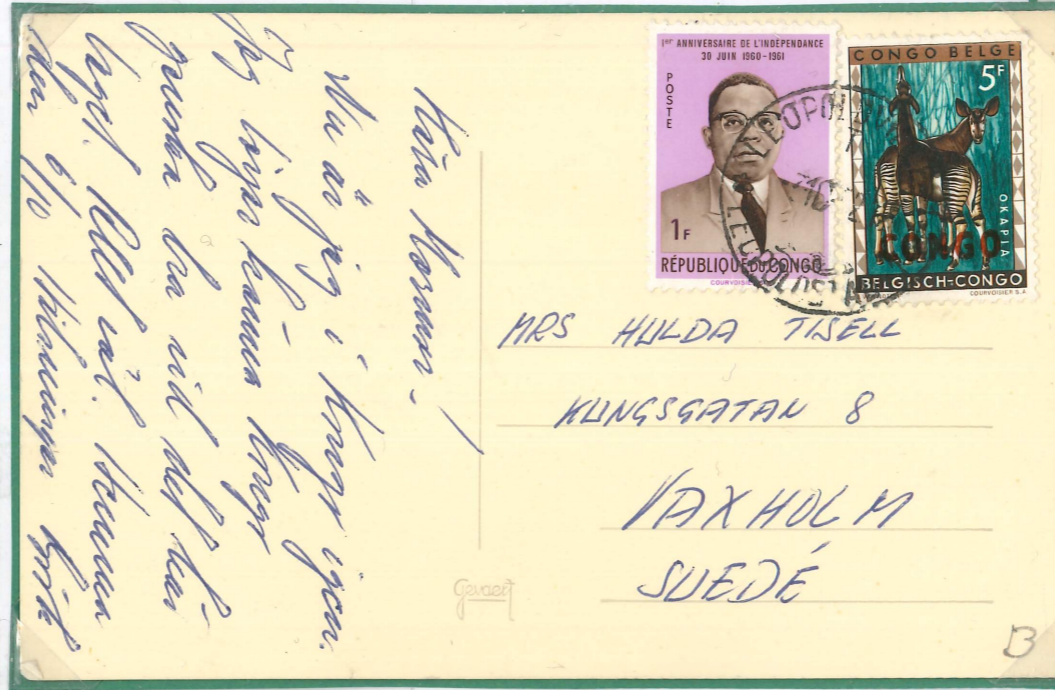 Kära Mormor!
Nu är jag i Kongo igen.
Jag börjar känna Kongo
ganska bra vid det här
laget. Allt väl. Hemma
den 6/10 Hälsningar
1er ANNIVERSAIRE DE L'INDÉPENDANCE
30 JUIN 1960-1961
POSTE
1F
RÉPUBLIQUE DU CONGO
COURVOISIER
CONGO BELGE
5F
OKAPIA
CONGO
BELGISCH-CONGO
COURVOISIER S.A.
MRS HULDA TISELL
KUNGSGATAN 8
VAXHOLM
SUEDÉ
Gevaert
B